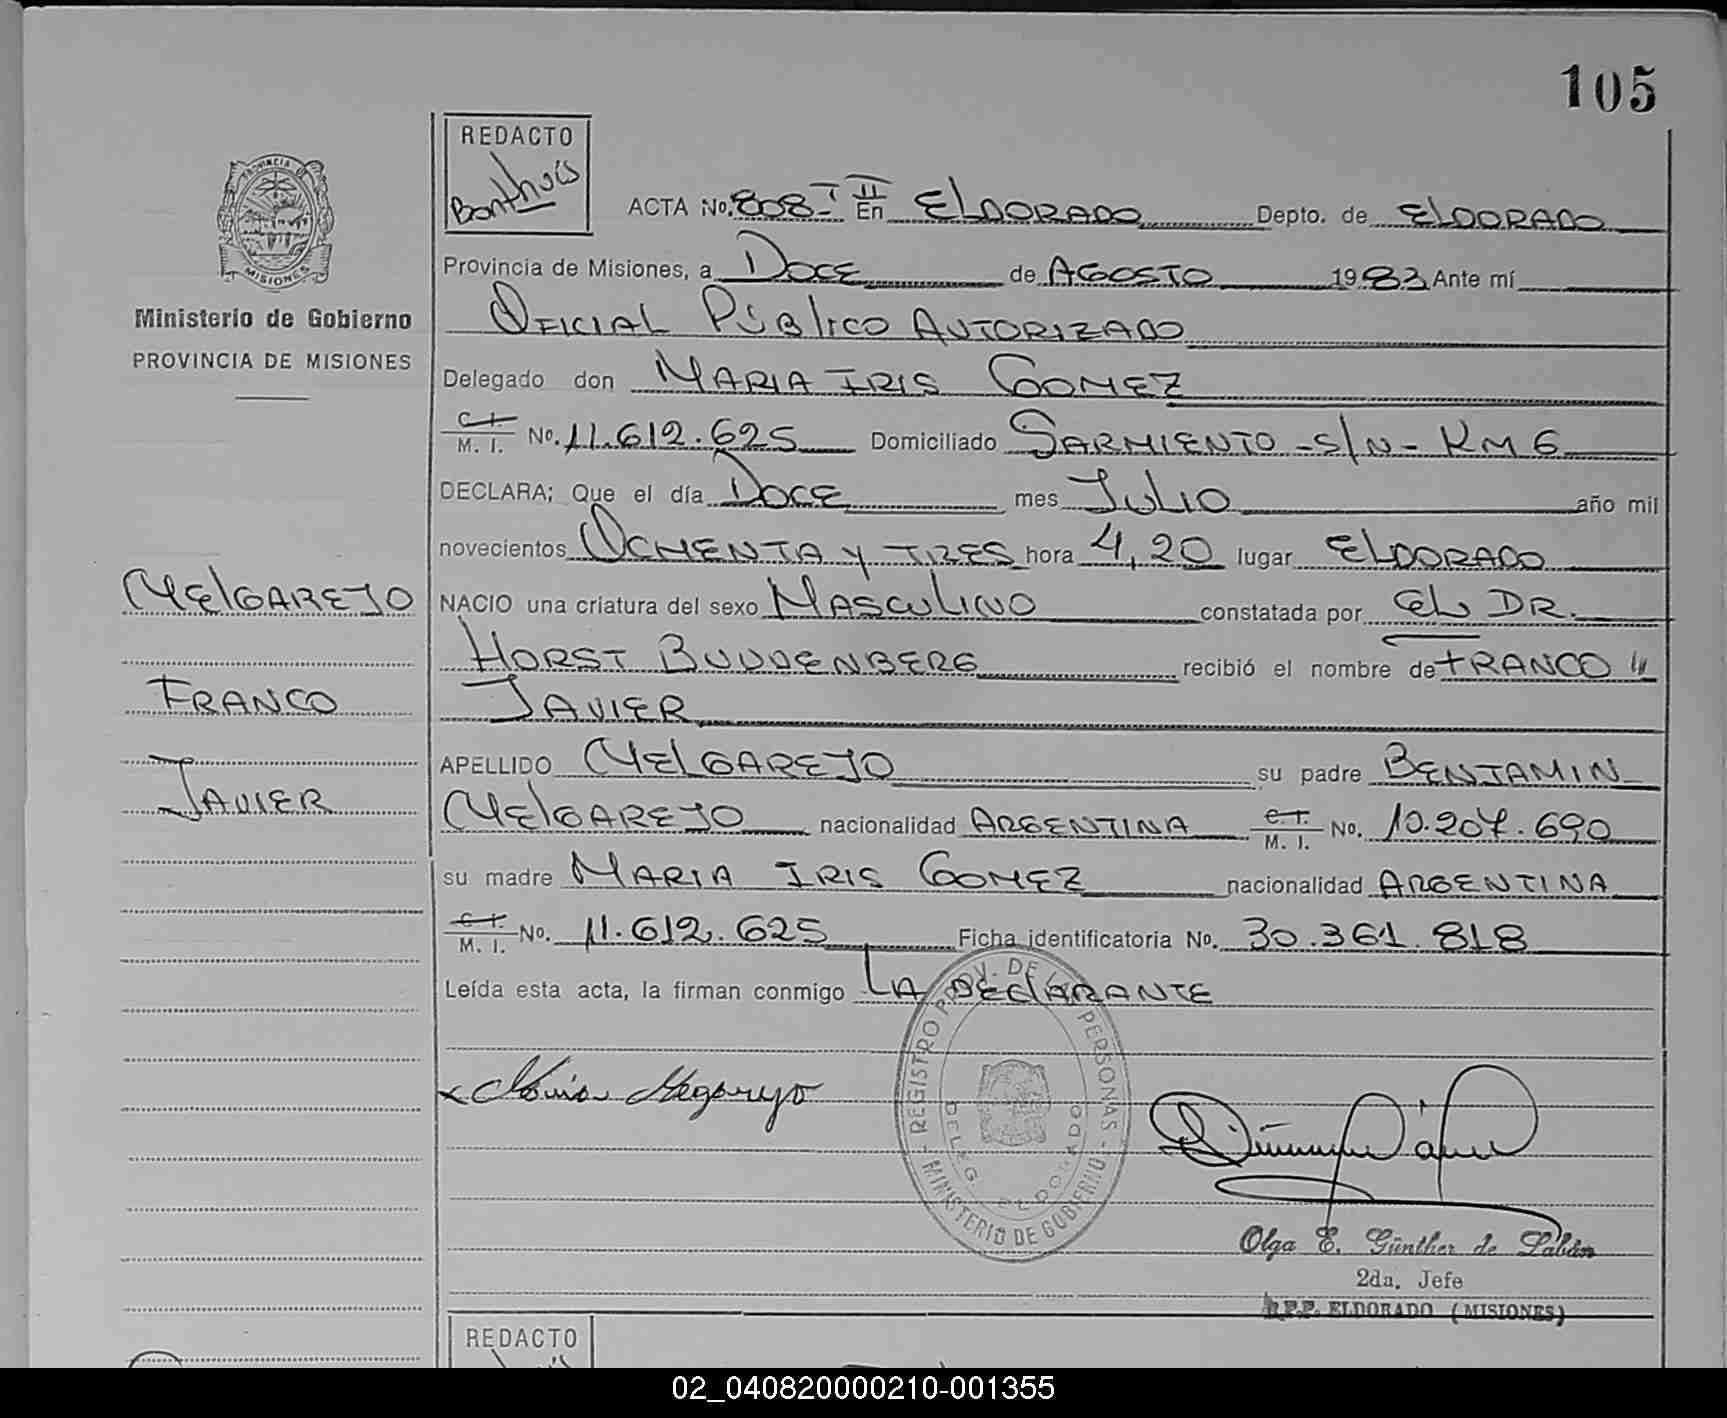 105
REDACTO
Bonthuis
ACTA No. 808 - I II En ELDORADO Depto. de ELDORADO
PROVINCIA DE
MISIONES
Provincia de Misiones, a DOCE de AGOSTO 1983 Ante mí
Ministerio de Gobierno
OFICIAL PÚBLICO AUTORIZADO
PROVINCIA DE MISIONES
Delegado don MARIA IRIS GOMEZ
C. I. M. I. No. 11.612.625 Domiciliado SARMIENTO - S/N - KM 6
DECLARA; Que el día DOCE mes JULIO año mil
novecientos OCHENTA Y TRES hora 4,20 lugar ELDORADO
MELGAREJO
NACIO una criatura del sexo MASCULINO constatada por EL DR.
HORST BUDDENBERG recibió el nombre de FRANCO "
FRANCO
JAVIER
APELLIDO MELGAREJO su padre BENJAMIN
JAVIER
MELGAREJO nacionalidad ARGENTINA C. I. M. I. No. 10.207.690
su madre MARIA IRIS GOMEZ nacionalidad ARGENTINA
C. I. M. I. No. 11.612.625 Ficha identificatoria No. 30.361.818
Leída esta acta, la firman conmigo LA DECLARANTE
REGISTRO PROV. DE LAS PERSONAS - MINISTERIO DE GOBIERNO -
DELEG. ELDORADO
x Maria Megarejo
Olga E. Günther de Labán
2da. Jefe
R.P.P. ELDORADO (MISIONES)
REDACTO
02_040820000210-001355